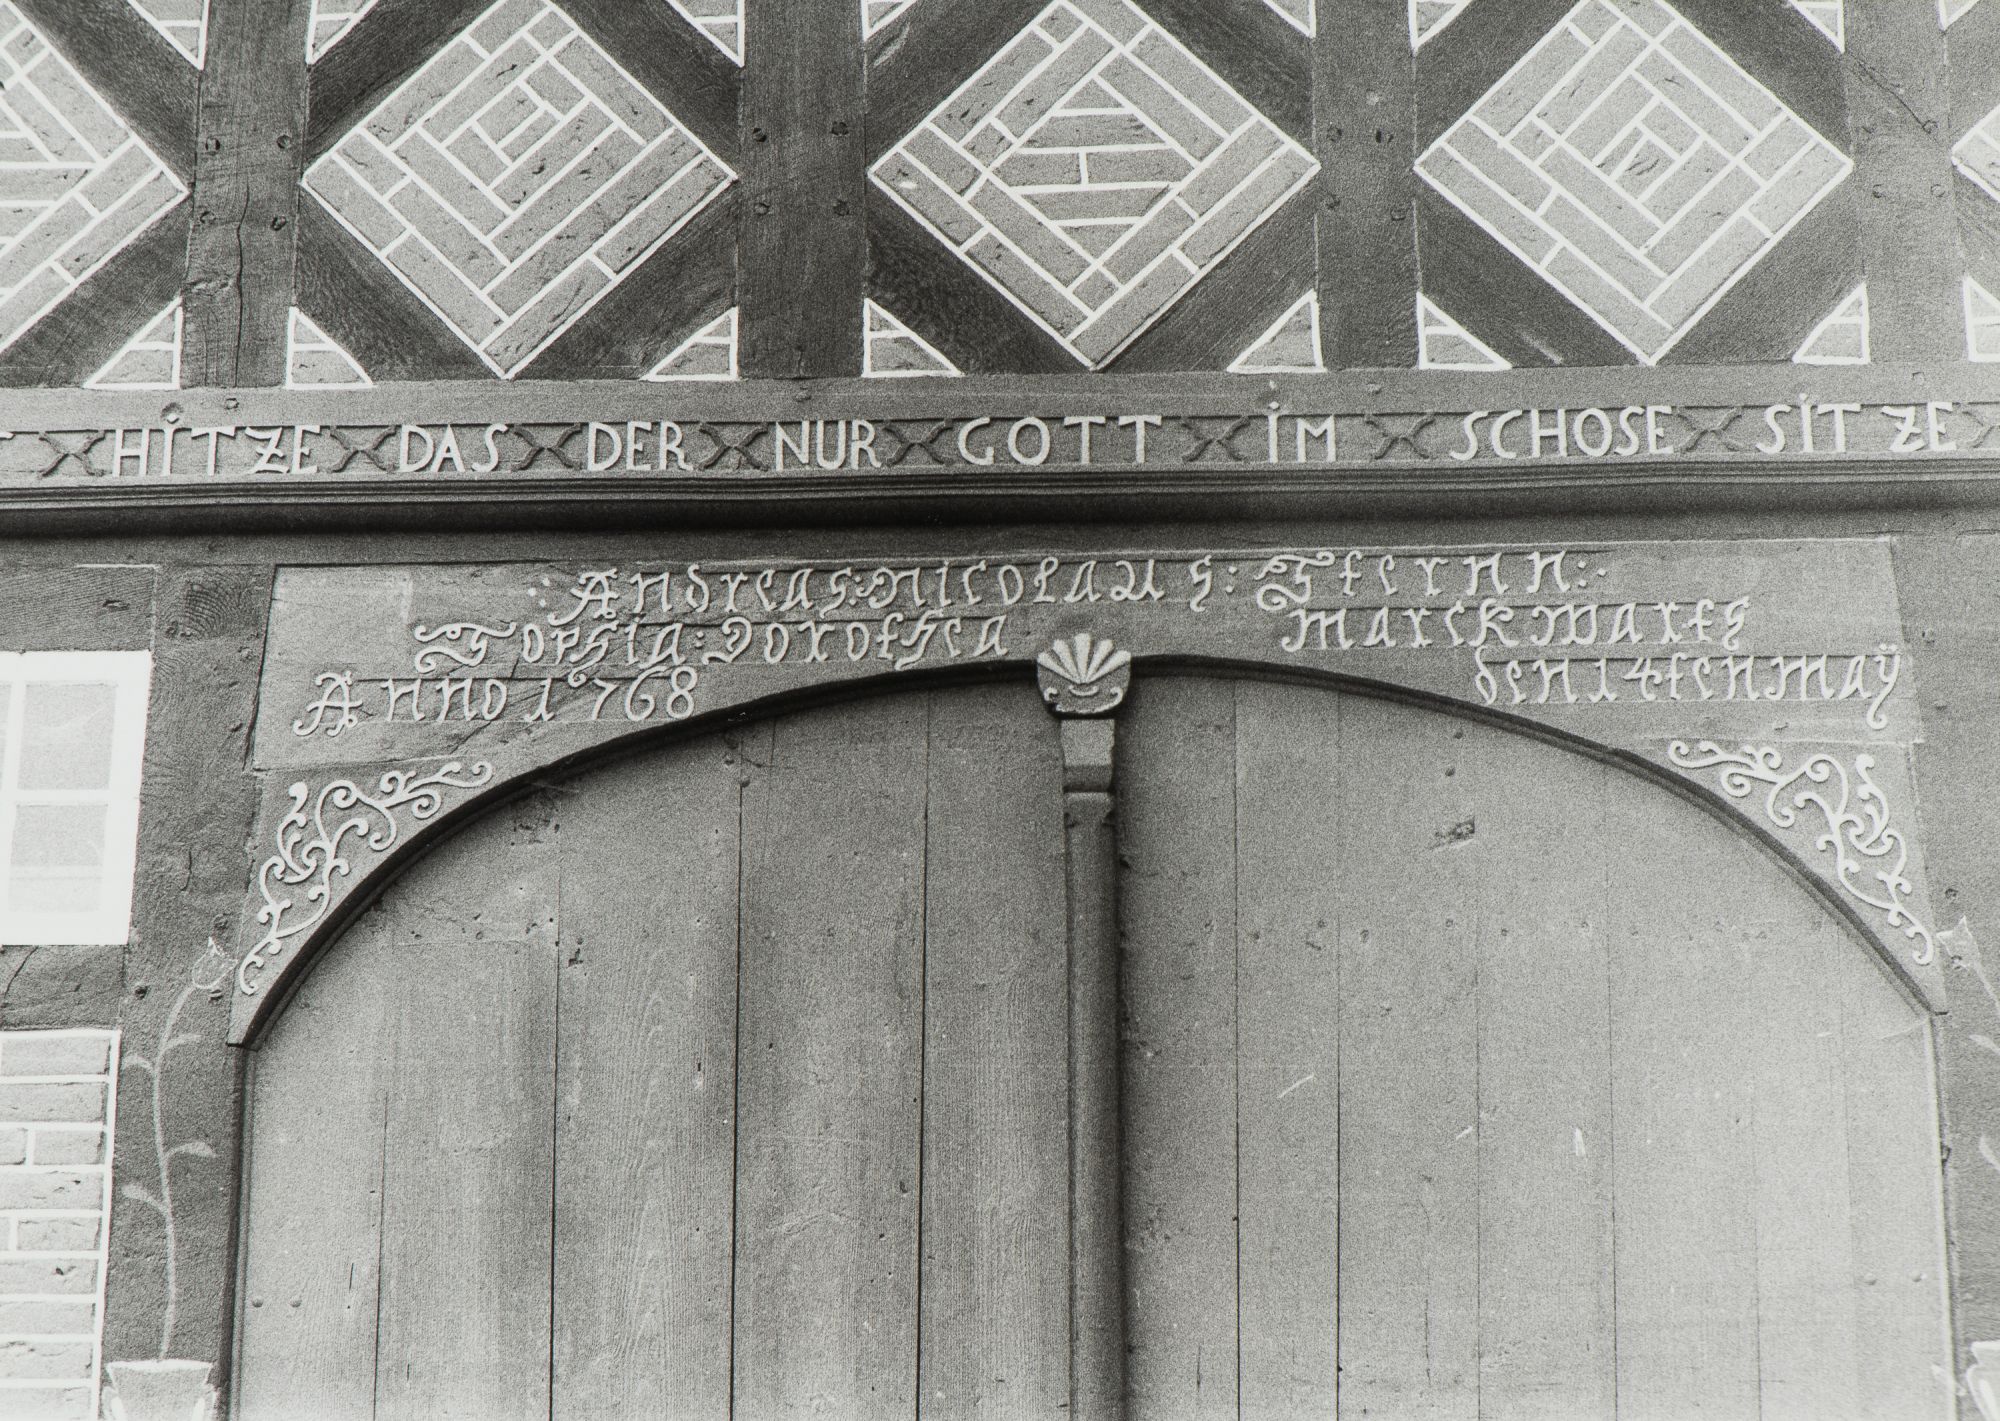 HiTZE DAS DER NUR GOTT iM SCHOSE SiTZE
:Andreas: Nicolaus: Sternn:
Sophia: Dorothea Marck Warts
Anno 1768 den 14ten May